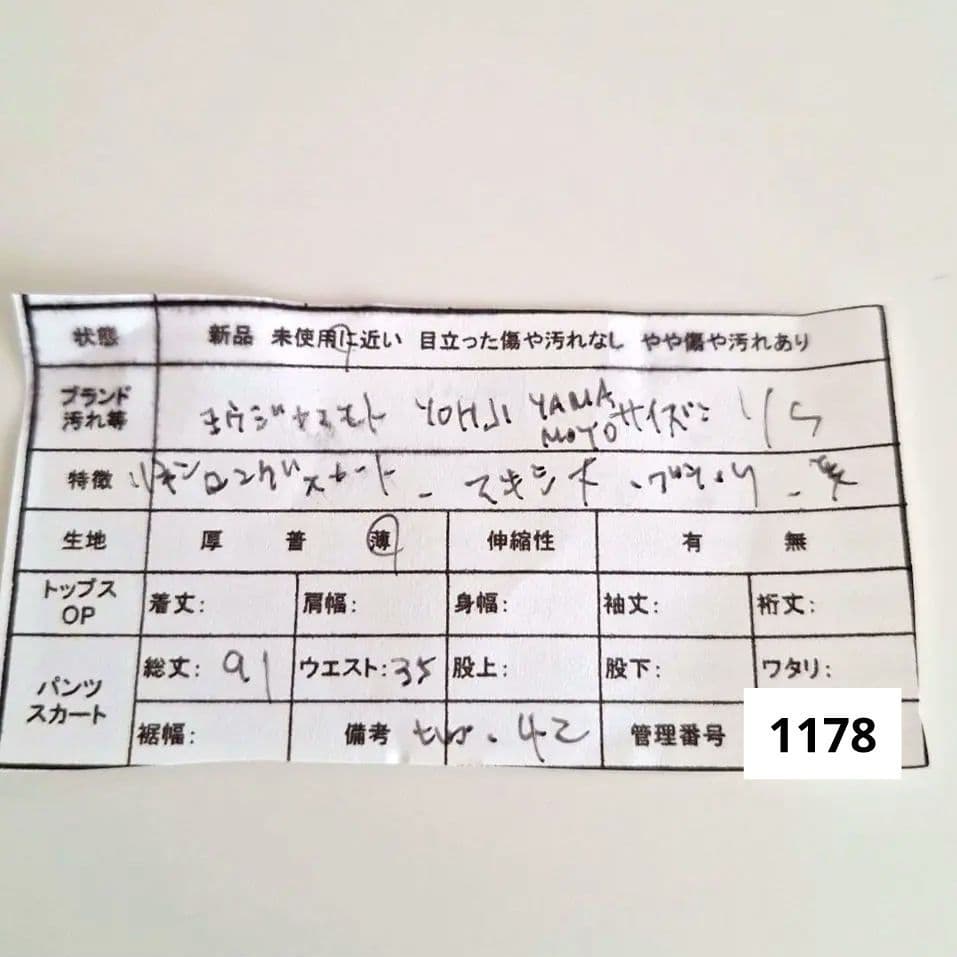 状態 新品 未使用に近い 目立った傷や汚れなし やや傷や汚れあり
ブランド
汚れ等
ヨウジヤマモト YOHJI YAMA
MOYO サイズ:
特徴 ロングスカート
生地 厚 普 薄 伸縮性 有 無
トップス
OP
着丈: 肩幅: 身幅: 袖丈: 裄丈:
パンツ
スカート
総丈: 91 ウエスト: 35 股上: 股下: ワタリ:
裾幅: 備考 42 管理番号 1178